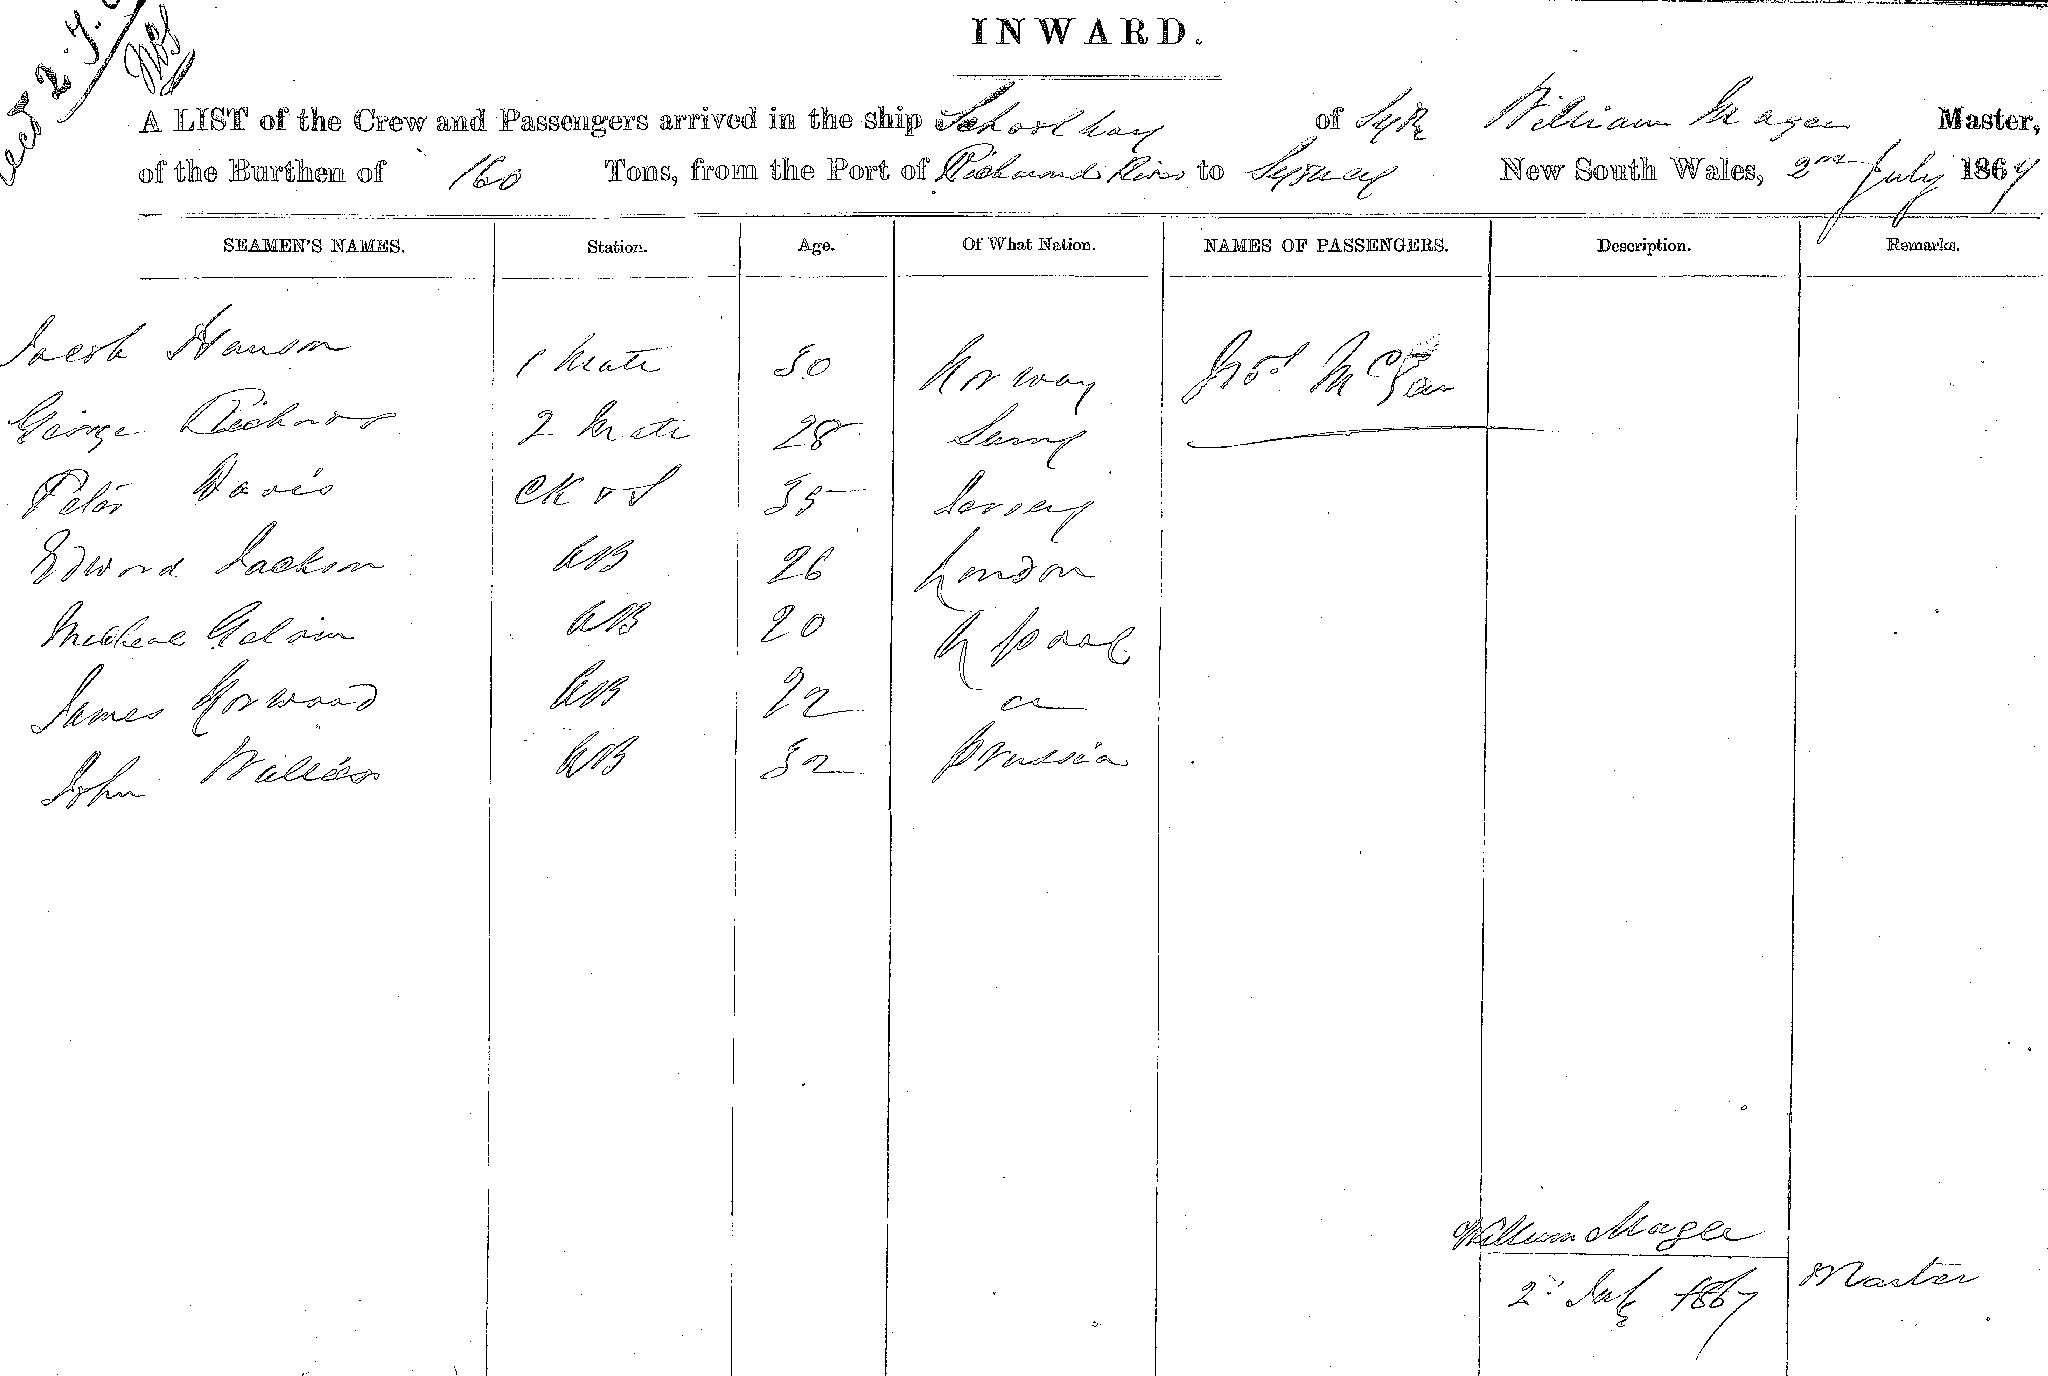 recd 2. 7.
INWARD.
A LIST of the Crew and Passengers arrived in the ship School boy of Syd William Mager Master,
of the Burthen of 160 Tons, from the Port of Richmond River to Sydney New South Wales, 2nd July 1867
SEAMEN'S NAMES. Station. Age. Of What Nation. NAMES OF PASSENGERS. Description. Remarks.
Jacob Hanson 1 Mate 30 Norway
George Richards 2 Mate 28
Peter Davis CK & S 35 Jersey
Edward Jackson AB 26 London
Micheal Galvin AB 20 L pool
James Norwood AB 22
John AB 32 Prussia
William Mager
2nd July 1867 Master